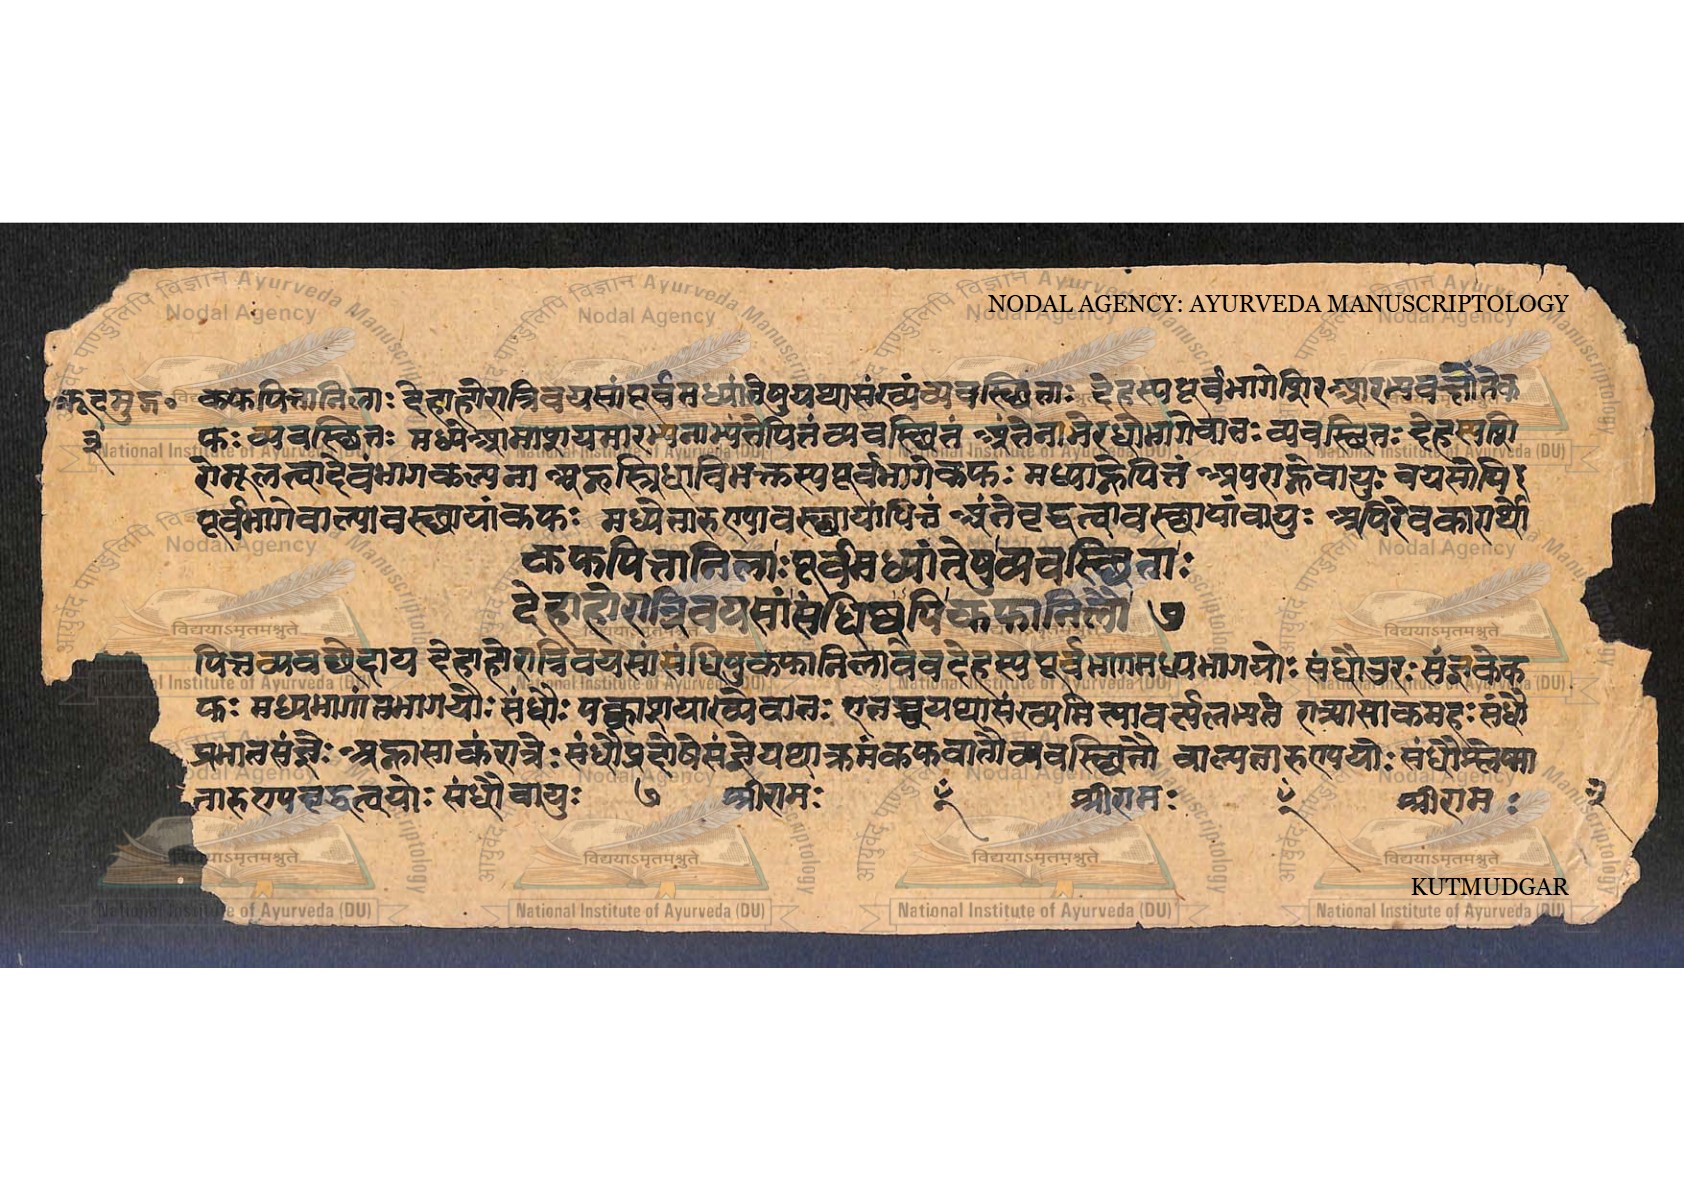 NODAL AGENCY: AYURVEDA MANUSCRIPTOLOGY
कूटमुद्ग॰ कफपित्तानिलाः देहाहोरात्रिवयसांपूर्वमध्यांतेषुयथासंख्यंव्यवस्थिताः देहस्यपूर्वभागेशिरआरभ्यवक्षोंतेक
३ फः व्यवस्थितः मध्येआमाशयमारभ्यनाभ्यंतेपित्तंव्यवस्थितं अंतेनाभेरधोभागेवातः व्यवस्थितः देहस्यशि
रोमूलत्वादेवंभागकल्पना अह्नस्त्रिधाविभक्तस्यपूर्वभागेकफः मध्याह्नेपित्तं अपराह्नेवायुः वयसोपि
पूर्वभागेबाल्यावस्थायांकफः मध्येतारुण्यावस्थायांपित्तं अंतेवृद्धत्वावस्थायांवायुः अपिरेवकारार्थो
कफपित्तानिलाःपूर्वमध्यांतेषुव्यवस्थिताः
देहाहोरात्रिवयसांसंधिष्वपिकफानिलौ ७
पित्तव्यवच्छेदाय देहाहोरात्रिवयसांसंधिषुकफानिलावेव देहस्यपूर्वभागमध्यभागयोः संधौउरः संज्ञकेक
फः मध्यभागांतभागयोः संधौः पक्वाशयाख्येवातः एतच्चयथासंख्यमित्यावर्त्यलभ्यते रात्र्यासाकमह्नः संधौ
प्रभातसंज्ञेः अह्नासाकंरात्रेः संधौप्रदोषेसंज्ञेयथाक्रमंकफवातौव्यवस्थितौ बाल्यतारुण्ययोः संधौश्लेष्मा
तारुण्यवृद्धत्वयोः संधौवायुः ७ श्रीरामः श्रीरामः श्रीरामः ३
KUTMUDGAR